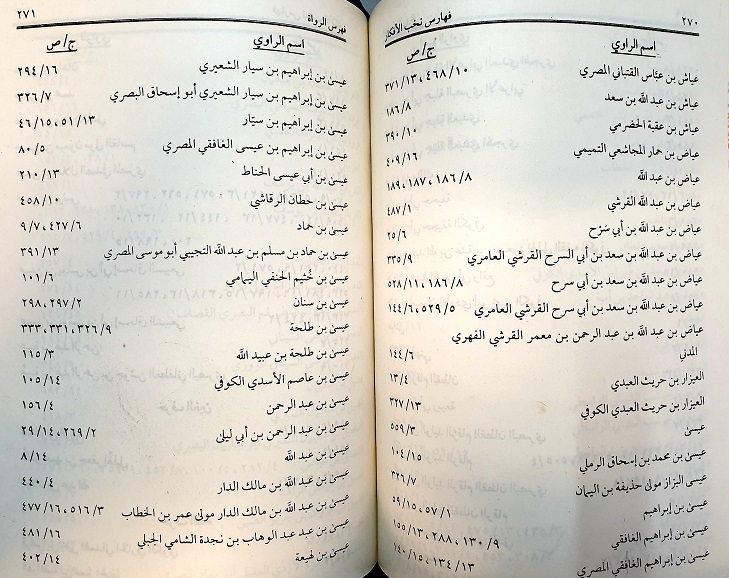 ٢٧٠ فهارس نخب الأفكار
اسم الراوي ج/ص
عياش بن عبّاس القتباني المصري ١٠/ ٤٦٨، ١٣/ ٣٧١
عياش بن عبد الله بن سعد ٨/ ١٨٦
عياش بن عقبة الحضرمي ١٠/ ٣٩٠
عياض بن حمار المجاشعي التميمي ١٦/ ٤٠٩
عياض بن عبد الله ٨/ ١٨٦، ١٨٧، ١٨٩
عياض بن عبد الله القرشي ١/ ٤٨٧
عياض بن عبد الله بن أبي سَرْح ٦/ ٢٥
عياض بن عبد الله بن سعد بن أبي السرح القرشي العامري ٩/ ٣٣٥
عياض بن عبد الله بن سعد بن أبي سرح ٨/ ١٨٦، ١١/ ٥٢٨
عياض بن عبد الله بن سعد بن أبي سرح القرشي العامري ٥/ ٥٢٩، ٦/ ١٤٤
عياض بن عبد الله بن عبد الرحمن بن معمر القرشي الفهري
المدني ٦/ ١٤٤
العيزار بن حريث العبدي ٤/ ١٣
العيزار بن حريث العبدي الكوفي ١٣/ ٣٢٧
عيسىٰ ٣/ ٥٥٩
عيسىٰ بن محمد بن إسحاق الرملي ١٥/ ١٠٤
عيسى البزاز مولى حذيفة بن اليمان ٧/ ٣٢٦
عيسىٰ بن إبراهيم ١/ ٥٧، ١٥/ ٥٩
عيسىٰ بن إبراهيم الغافقي ٩/ ١٣٠، ٢٨٨، ١٣/ ١٥٥
عيسىٰ بن إبراهيم الغافقي المصري ١٣/ ١٣٤، ١٥/ ١٤٠
فهرس الرواة ٢٧١
اسم الراوي ج/ص
عيسىٰ بن إبراهيم بن سيار الشعيري ١٦/ ٢٩٤
عيسىٰ بن إبراهيم بن سيار الشعيري أبو إسحاق البصري ٧/ ٣٢٦
عيسىٰ بن إبراهيم بن سيّار ١٣/ ٥١، ١٥/ ٤٦
عيسىٰ بن إبراهيم بن عيسى الغافقي المصري ٥/ ٨٠
عيسىٰ بن أبي عيسى الحناط ١٣/ ٢١٠
عيسىٰ بن حطان الرقاشي ١٠/ ٤٥٨
عيسىٰ بن حماد ٦/ ٤٢٧، ٧/ ٩
عيسىٰ بن حماد بن مسلم بن عبد الله التجيبي أبو موسى المصري ١٣/ ٣٩١
عيسىٰ بن خُثيم الحنفي اليمامي ٦/ ١٠١
عيسىٰ بن سنان ٢/ ٢٩٧، ٢٩٨
عيسىٰ بن طلحة ٩/ ٣٢٦، ٣٣١، ٣٣٣
عيسىٰ بن طلحة بن عبيد الله ٣/ ١١٥
عيسىٰ بن عاصم الأسدي الكوفي ١٤/ ١٠٥
عيسىٰ بن عبد الرحمن ٤/ ١٥٦
عيسىٰ بن عبد الرحمن بن أبي ليلىٰ ٢/ ٢٦٩، ١٤/ ٢٩
عيسىٰ بن عبد الله ١٤/ ٨
عيسىٰ بن عبد الله بن مالك الدار ٤/ ٤٤٠
عيسىٰ بن عبد الله بن مالك الدار مولى عمر بن الخطاب ٣/ ٥١٦، ١٦/ ٤٧٧
عيسىٰ بن عبد عبد الوهاب بن نجدة الشامي الجبلي ١٦/ ٤٨١
عيسىٰ بن لهيعة ١٤/ ٤٠٢